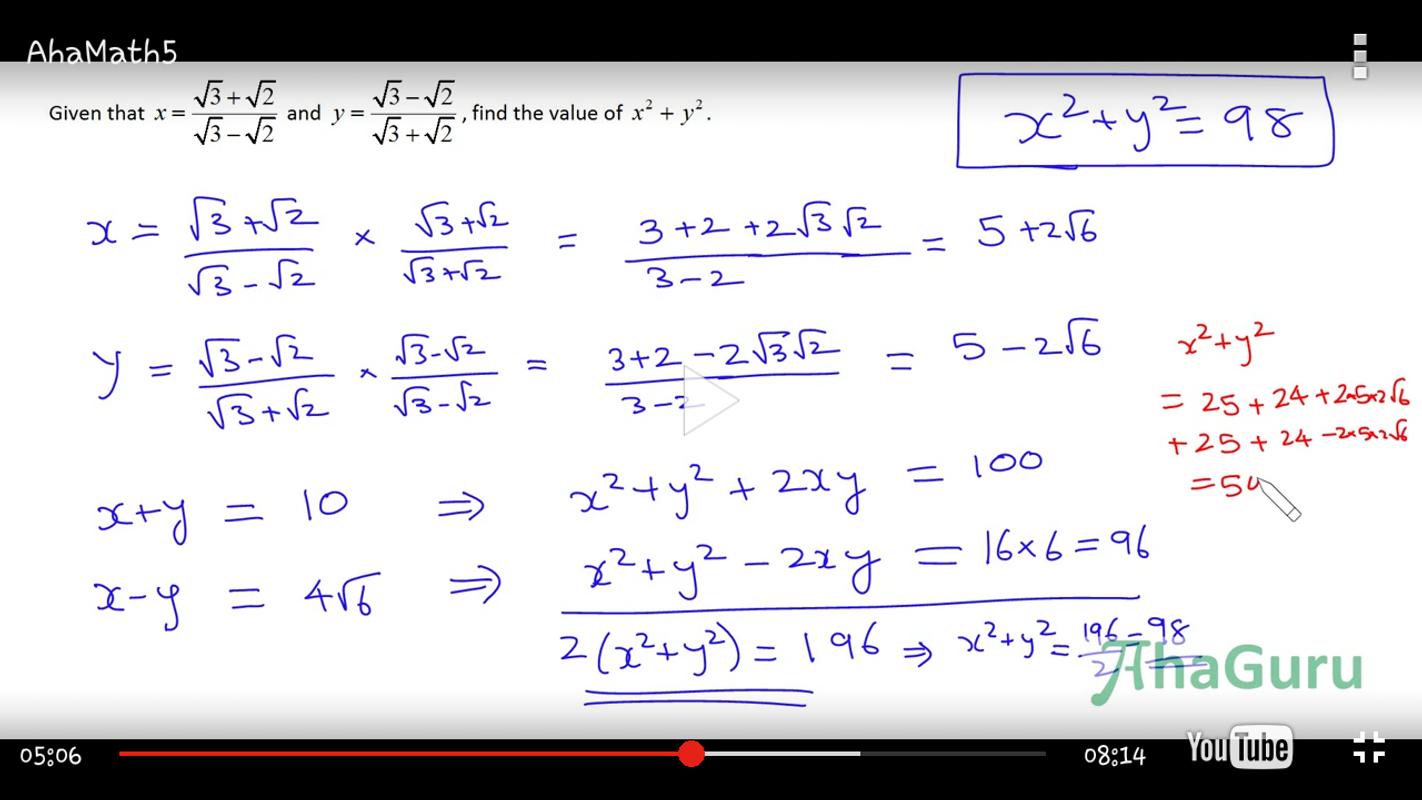 AhaMath5
Given that x = (√3+√2)/(√3−√2) and y = (√3−√2)/(√3+√2), find the value of x² + y².
x²+y²= 98
x = (√3+√2)/(√3−√2) × (√3+√2)/(√3+√2) = (3+2+2√3√2)/(3−2) = 5+2√6
y = (√3−√2)/(√3+√2) × (√3−√2)/(√3−√2) = (3+2−2√3√2)/(3−2) = 5−2√6
x²+y²
= 25+24+2×5×2√6
+25+24−2×5×2√6
=50
x+y = 10 ⇒ x²+y²+2xy = 100
x−y = 4√6 ⇒ x²+y²−2xy = 16×6=96
2(x²+y²)= 196 ⇒ x²+y²= 196/2 = 98
AhaGuru
05:06
08:14
YouTube